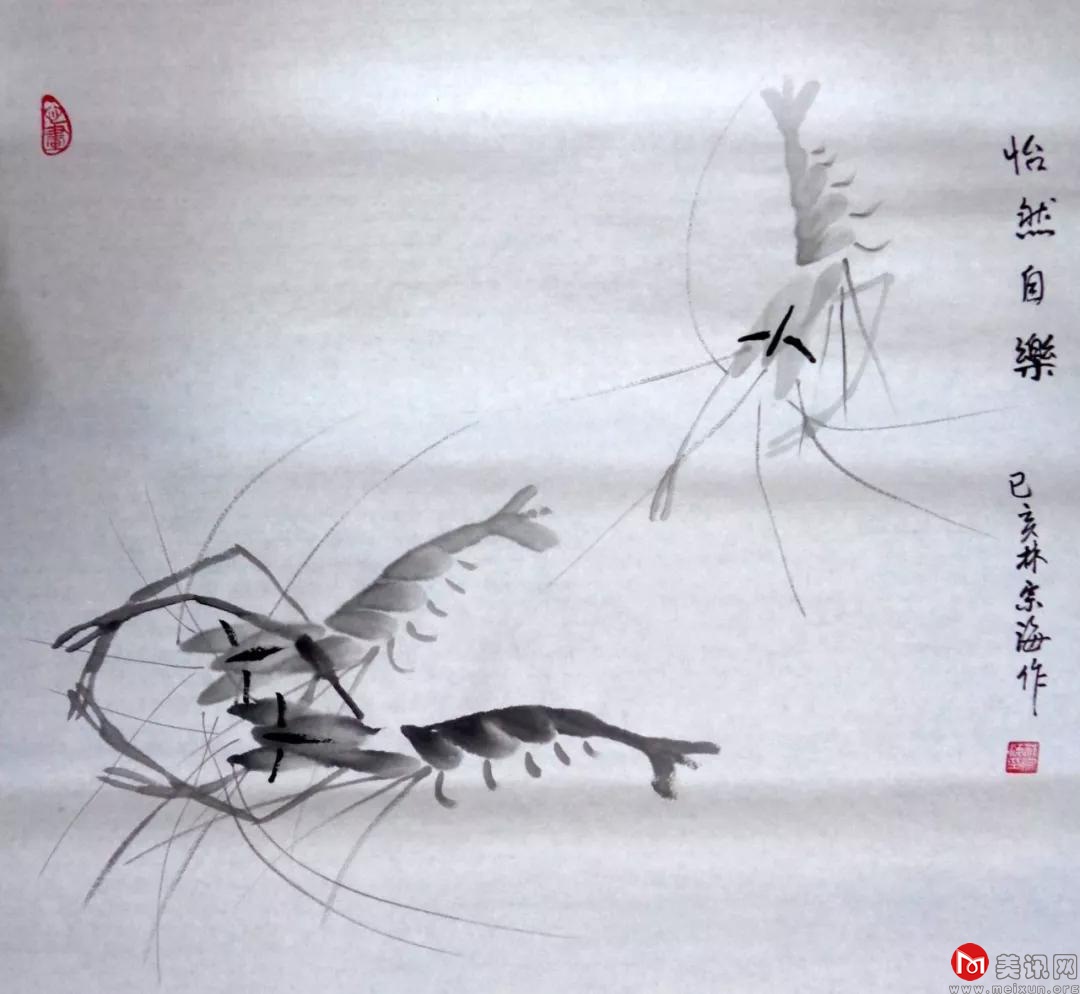 怡然自樂
己亥林宗海作
美讯网
www.meixun.org